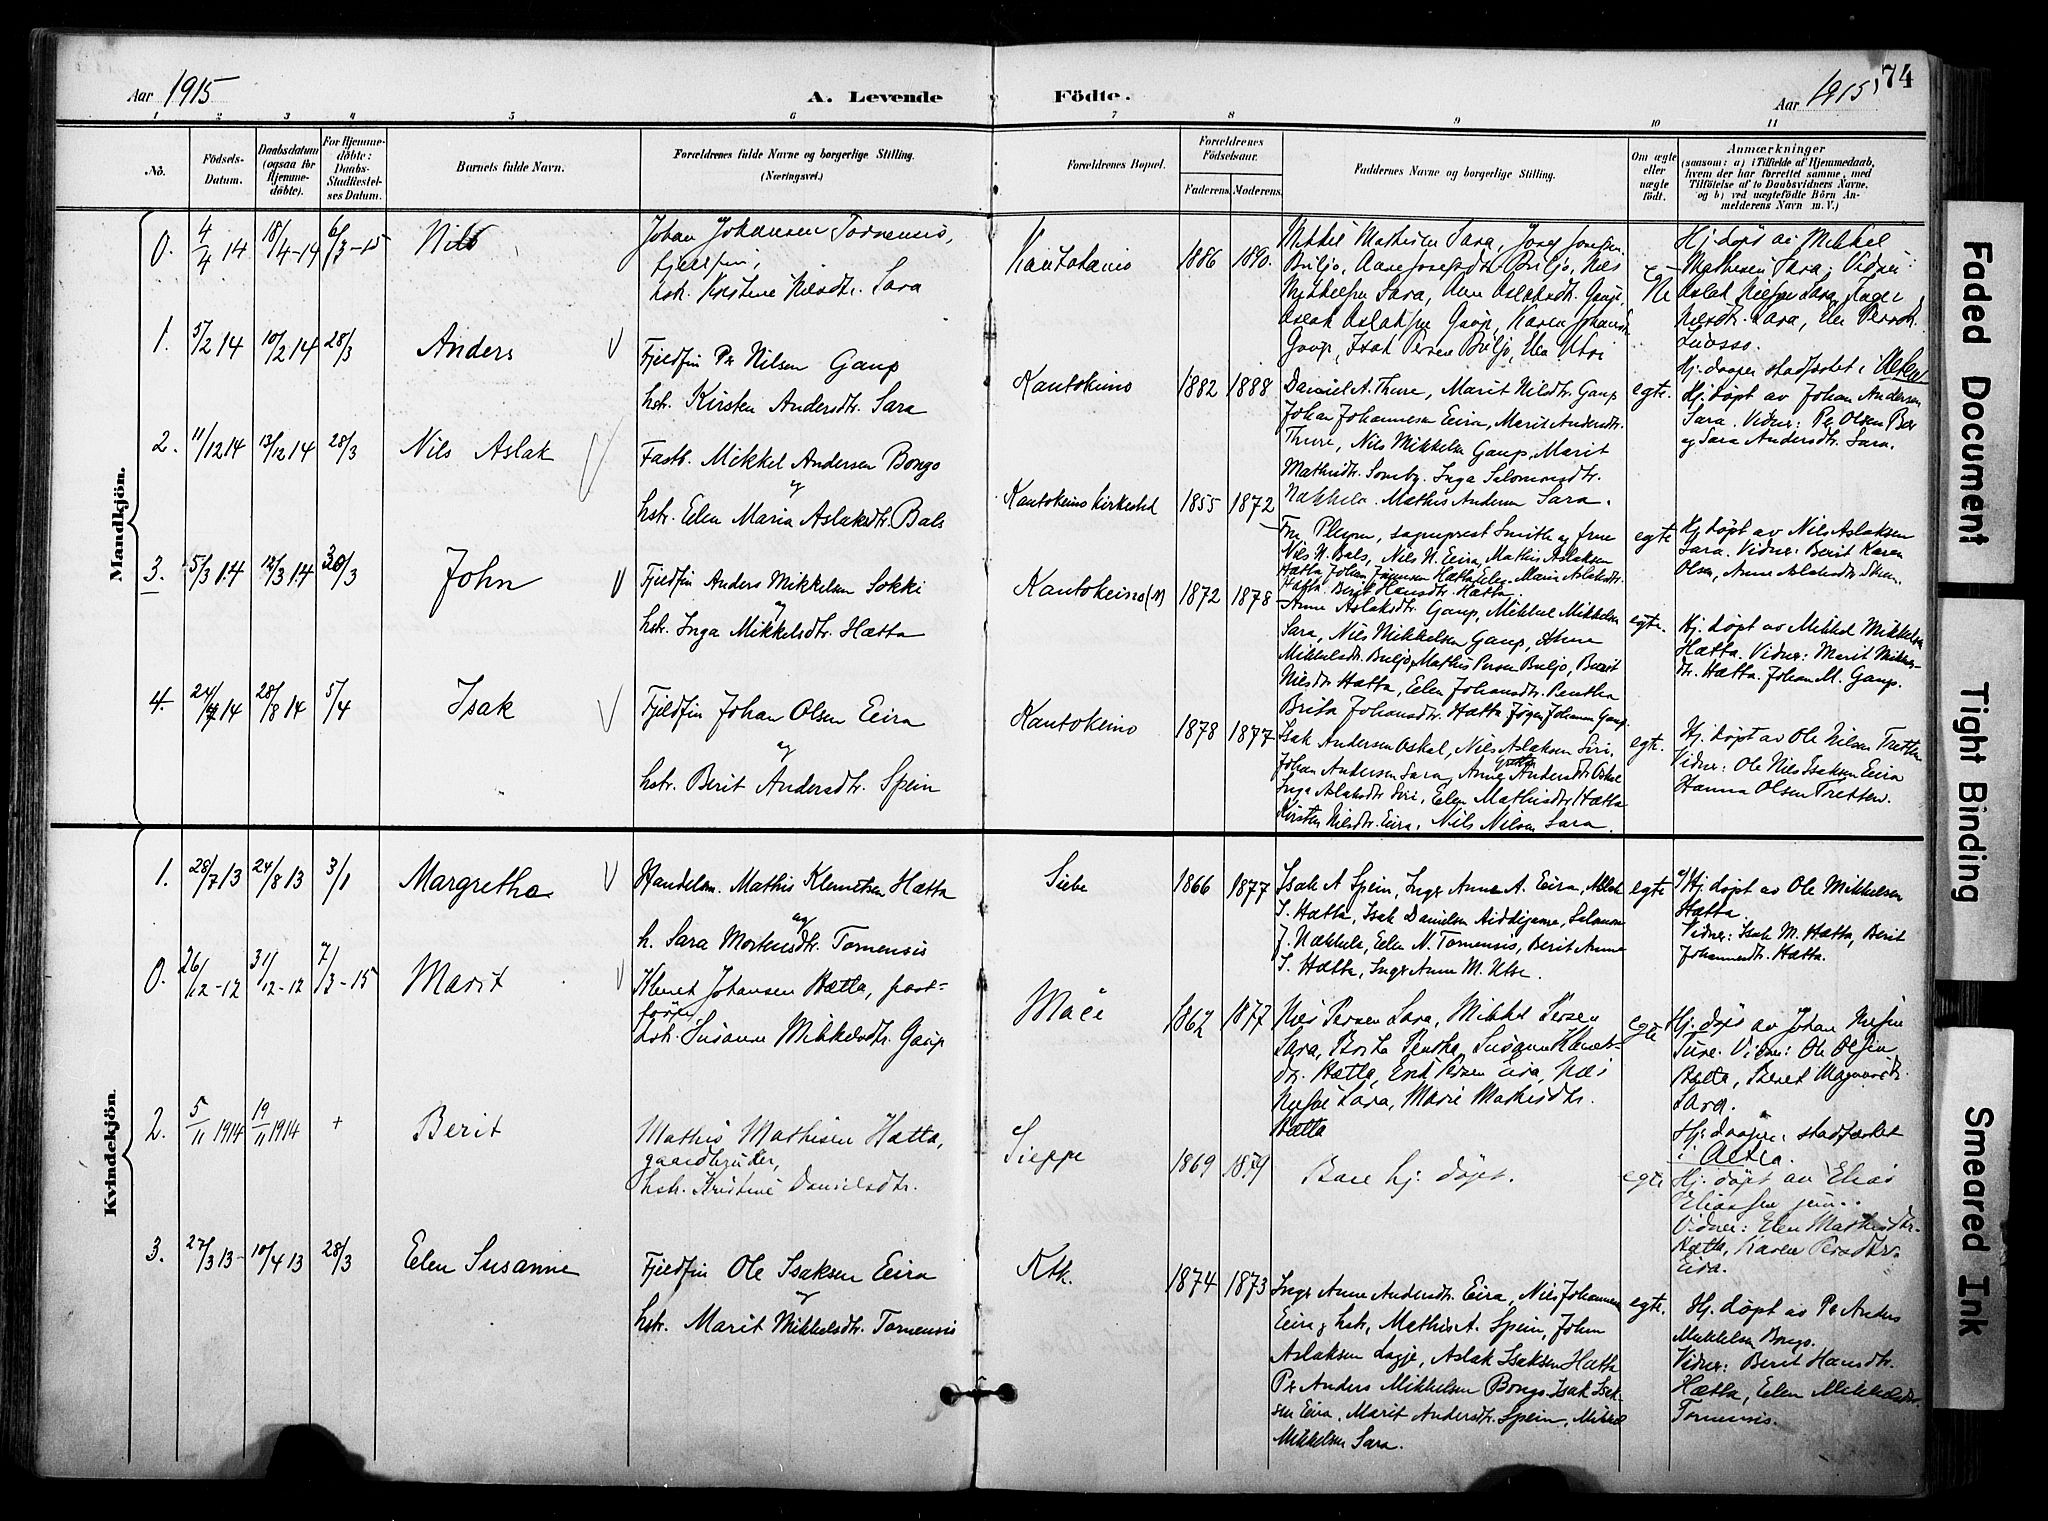 Aar 1915
A. Levende Födte.
Aar 1915
74
1 2 3 4 5 6 7 8 9 10 11
No.
Födsels-
Datum.
Daabsdatum
(ogsaa for
Hjemme-
döbte).
For Hjemme-
döbte:
Daabs-
Stadfæstel-
ses Datum.
Barnets fulde Navn.
Forældrenes fulde Navne og borgerlige Stilling.
(Næringsvei.)
Forældrenes Bopæl.
Forældrenes
Födselsaar.
Faderens. Moderens.
Faddernes Navne og borgerlige Stilling.
Om ægte
eller
uægte
födt.
Anmærkninger
(saasom: a) i Tilfælde af Hjemmedaab,
hvem der har forrettet samme, med
Tilföielse af to Daabsvidners Navne,
og b) ved uægtefödte Börn An-
melderens Navn m. V.)
Mandkjön.
0. 4/4 14 18/4-14 6/3-15 Nils
Johan Johansen Tornensis,
og
hstr. Kristine Nilsdtr. Sara
Kautokeino 1886 1890.
Mikkel Mathisen Sara, Josef Josefsen
Buljo, Aane Josefsdtr. Buljo, Nils
Mikkelsen Sara, Ane Aslaksdtr. Gaup,
Aslak Aslaksen Gaup, Karen Johansdtr.
Gaup, Isak Persen Buljo, Elen Utsi
Hj. døpt av Mikkel
Mathisen Sara; Vidner:
Aslak Nielsen Sara, Inger
Nilsdtr. Sara, Elen Persdtr.
Hj. daapen stadfæstet i
1. 5/2 14 10/2 14 28/3 Anders
Fjeldfin Per Nilsen Gaup
hstr. Kirsten Andersdtr. Sara
Kautokeino 1882 1888
Daniel A. Thure, Marit Nilsdtr. Gaup
Johan Johannesen Eira, Marit Andersdtr.
Thure, Nils Mikkelsen Gaup, Marit
Mathisdtr. Somby, Inga Salomonsdtr.
Nækkela. Mathis Andersen Sara.
egte.
Hj. døpt av Johan Andersen
Sara. Vidner: Per Olsen Bær
og Sara Andersdtr. Sara.
2. 11/12 14 13/12 14 28/3 Nils Aslak
Fastb. Mikkel Andersen Bongo
og
hstr. Elen Maria Aslaksdtr. Bals
Kautokeino Kirkested 1855 1872
sogneprest Smith og frue
Nils N. Bals, Nils N. Eira, Mathis Aslaksen
Hætta, Johan Hætta, Elen Marie Aslaksdtr.
Hætta, Berit Hansdtr. Hætta.
egte
Hj. døpt av Nils Aslaksen
Sara. Vidner: Berit Karen
Olsen, Anne Aslaksdtr.
3. 5/3 14 12/3 14 30/3 John
Fjeldfin Anders Mikkelsen Sokki
og
hstr. Inga Mikkelsdtr. Hætta
Kautokeino (N) 1872 1878
Anne Aslaksdtr. Gaup, Mikkel Mikkelsen
Sara, Nils Mikkelsen Gaup, Anne
Mikkelsdtr. Buljo, Mathis Persen Buljo, Berit
Nilsdtr. Hætta, Elen Johansdtr. Bentha
Brita Johansdtr. Hætta, Johansen Gaup.
egte.
Hj. døpt av Mikkel Mikkelsen
Hætta. Vidner: Marit Mikkels-
dtr. Hætta. Johan M. Gaup.
4. 24/7 14 28/8 14 5/4 Isak
Fjeldfin Johan Olsen Eira
og
hstr. Berit Andersdtr. Spein
Kautokeino 1878 1877
Isak Andersen Oskal, Nils Aslaksen Siri,
Johan Andersen Sara, Anne Andersdtr. Oskal
Inga Aslaksdtr. Siri, Elen Mathisdtr. Hætta
Kirsten Nilsdtr. Eira, Nils Nilsen Sara.
egte.
Hj. døpt av Ole Nilsen Tretten
Vidner: Ole Nils Isaksen Eira
Hanna Olsen Tretten.
Kvindekjön.
1. 28/7 13 24/8 13 3/1 Margretha
Handelsm. Mathis Klemetsen Hætta
og
h. Sara Mortensdtr. Tornensis
Siebe 1866 1877
Isak A Spein, Inger Anne A. Eira, Aslak
I. Hætta, Isak Danielsen Aiddigamo, Salomon
J. Nækkela, Elen N. Tornensis, Berit Anne
I. Hætta, Inger Anne M. Utse.
egte
Hj. døpt av Ole Mikkelsen
Hætta.
Vidner: Isak M. Hætta, Berit
Johannesdtr. Hætta.
0. 26/12-12 31/12-12 7/3-15 Marit
Klemet Johansen Hætta, post-
fører
hstr. Susanne Mikkelsdtr. Gaup
1862 1877
Nils Persen Sara, Mikkel Persen
Sara, Brita Bentha, Susanne Klemets-
dtr. Hætta, Erik Persen Eira, Nils
Nilsen Sara, Marie Mathisdtr.
Hætta
egte
Hj. døpt av Johan Nilsen
Ture. Vidner: Ole Olsen
Berit
Sara.
Hj. daapen stadfæstet
i Alta.
2. 5/11 1914 19/11 1914 + Berit
Mathis Mathisen Hætta,
gaardbruker,
hstr. Kristine Danielsdtr.
Sieppe 1869 1879
Bare hj. døpt.
egte
Hj. døpt av Elias
Eliassen jun..
Vidner: Elen Mathisdtr.
Hætta, Karen Persdtr.
Eira.
3. 27/3 13- 10/4 13 28/3 Elen Susanne
Fjeldfin Ole Isaksen Eira
og
hstr. Marit Mikkelsdtr. Tornensis
Ktk. 1874 1873
Inger Anne Andersdtr. Eira, Nils Johannesen
Eira og hstr, Mathis A. Spein, John
Aslaksen Logje, Aslak Isaksen Hætta
Per Anders Mikkelsen Bongo. Isak Isak-
sen Eira, Marit Andersdtr. Spein, Mikkel
Mikkelsen Sara.
egte.
Hj. døpt av Per Anders
Mikkelsen Bongo.
Vidner: Berit Hansdtr.
Hætta, Elen Mikkelsdtr.
Tornensis.
Faded Document
Tight Binding
Smeared Ink